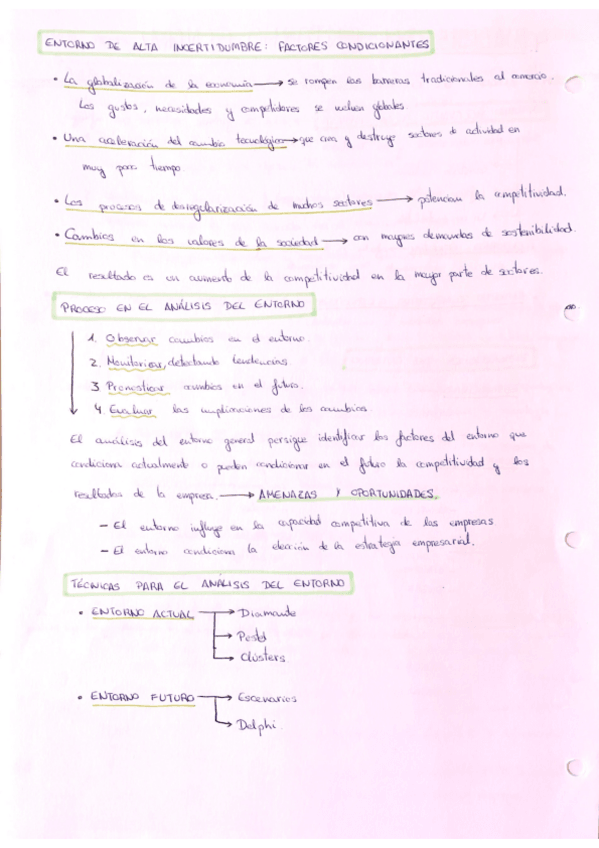 ENTORNO DE ALTA INCERTIDUMBRE: FACTORES CONDICIONANTES
• La globalización de la economía → se rompen las barreras tradicionales al comercio.
Los gustos, necesidades y competidores se vuelven globales.
• Una aceleración del cambio tecnológico → que crea y destruye sectores de actividad en
muy poco tiempo
• Los procesos de desregularización de muchos sectores → potencian la competitividad.
• Cambios en los valores de la sociedad → con mayores demandas de sostenibilidad.
El resultado es un aumento de la competitividad en la mayor parte de sectores.
PROCESO EN EL ANÁLISIS DEL ENTORNO
1. Observar cambios en el entorno.
2. Monitorizar, detectando tendencias.
3. Pronosticar cambios en el futuro.
4. Evaluar las implicaciones de los cambios.
El análisis del entorno general persigue identificar los factores del entorno que
condicionan actualmente o pueden condicionar en el futuro la competitividad y los
resultados de la empresa. → AMENAZAS Y OPORTUNIDADES.
– El entorno influye en la capacidad competitiva de las empresas
– El entorno condiciona la elección de la estrategia empresarial.
TÉCNICAS PARA EL ANÁLISIS DEL ENTORNO
• ENTORNO ACTUAL → Diamante
→ Pestel
→ Clústers.
• ENTORNO FUTURO → Escenarios
→ Delphi.